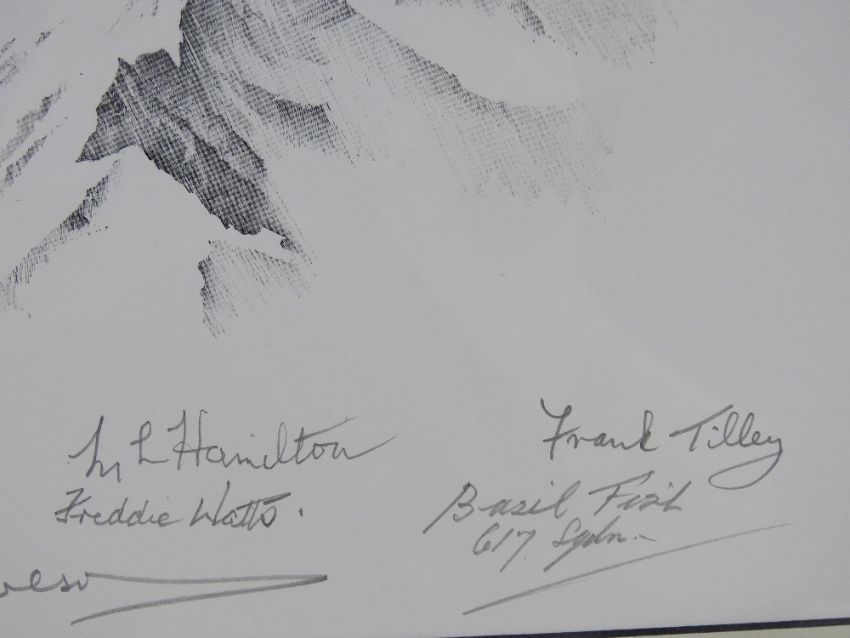 M L Hamilton
Freddie Watts.
Frank Tilley
Basil Fish
617 Sqdn.